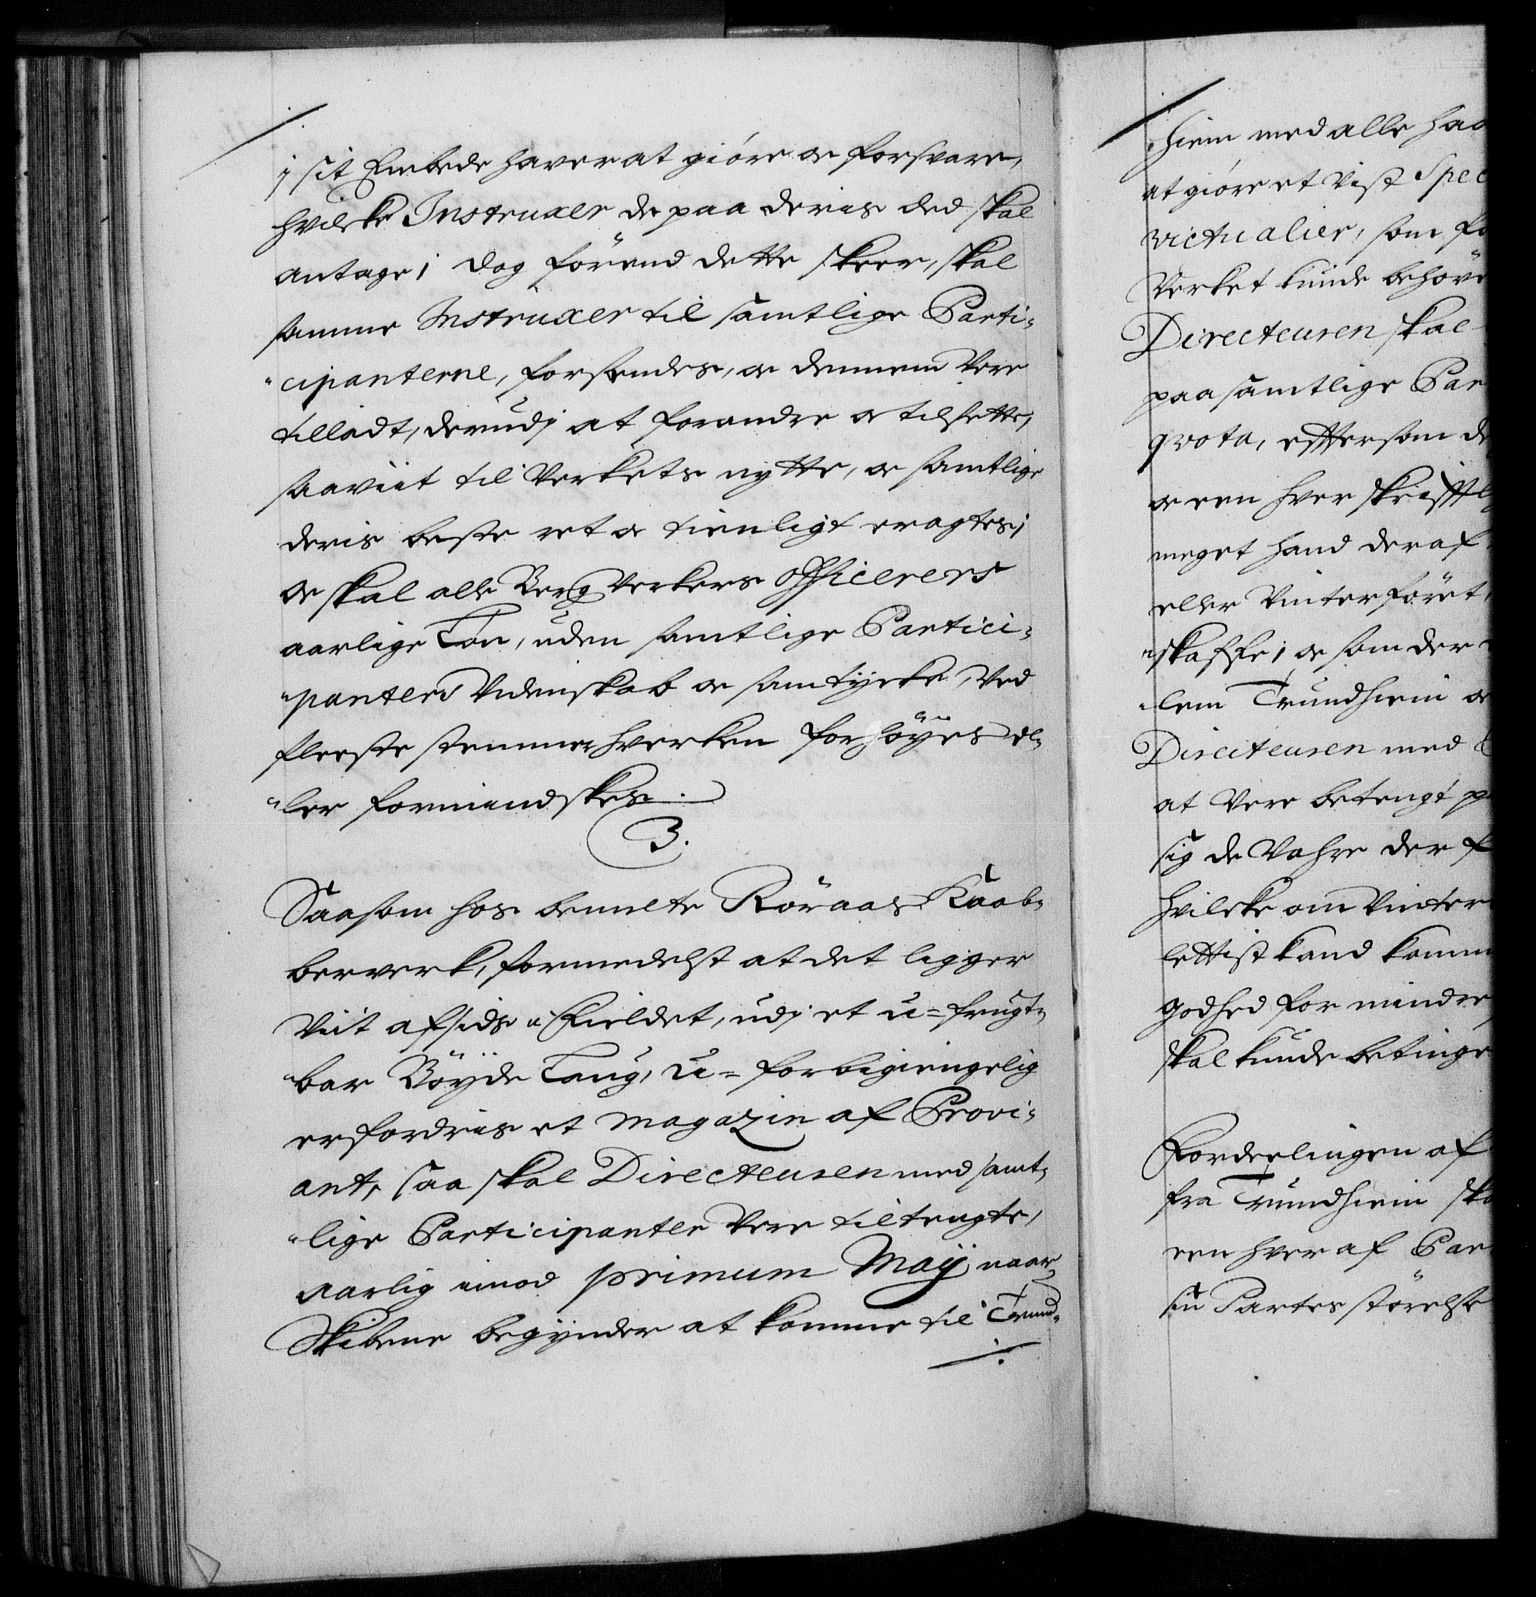 i sit Embede haver at giöre oc forsvare,
hvilcke Instruxer de paa deris Eed skal
antage; dog förend dette skeer, skal
samme Instruxer til samtlige Parti-
cipanterne, forsendes, oc dennem Vere
tilladt, derudj at forandre oc tilsette,
saaviit til Verkets nytte, oc samtlige
deris beste ret oc tienligt eragtes;
oc skal alle Berg Verkers Officerers
aarlige Lön, uden samtlige Partici-
panters Videnskab oc samtycke, Ved
fleeste stemmer hverken forhöyes el-
ler formindskes.
3.
Saasom hos bemelte Röraas Kaab-
berverk, formedelst at det ligger
Viit afsides i Fieldet, udj et u-frugt-
bar Böyde Laug, u-forbigiengelig
erfordris et Magazin af Provi-
ant, saa skal Directeuren med samt-
lige Participanter Vere tiltengte,
aarlig imod primum Maij naar
Skibene begynder at komme til Trund-
hiem med alle haa
at giöre et Vist Spec
victualier, som fo
Verket kunde behöve
Directeuren skal
paa samtlige Par
qvota, effter som de
oc een hver skrifftl
meget hand deraf
eller Vinterföret,
skaffe; oc som der
lem Trundhiem oc
Directeuren med
at Vere betengt p
sig de Vahre der f
hvilcke om Vinter
lettist kand komm
godhed for mindre
skal kunde betinge
Fordeelingen af
fra Trundhiem ska
een hver af Par
sin Partes störelse